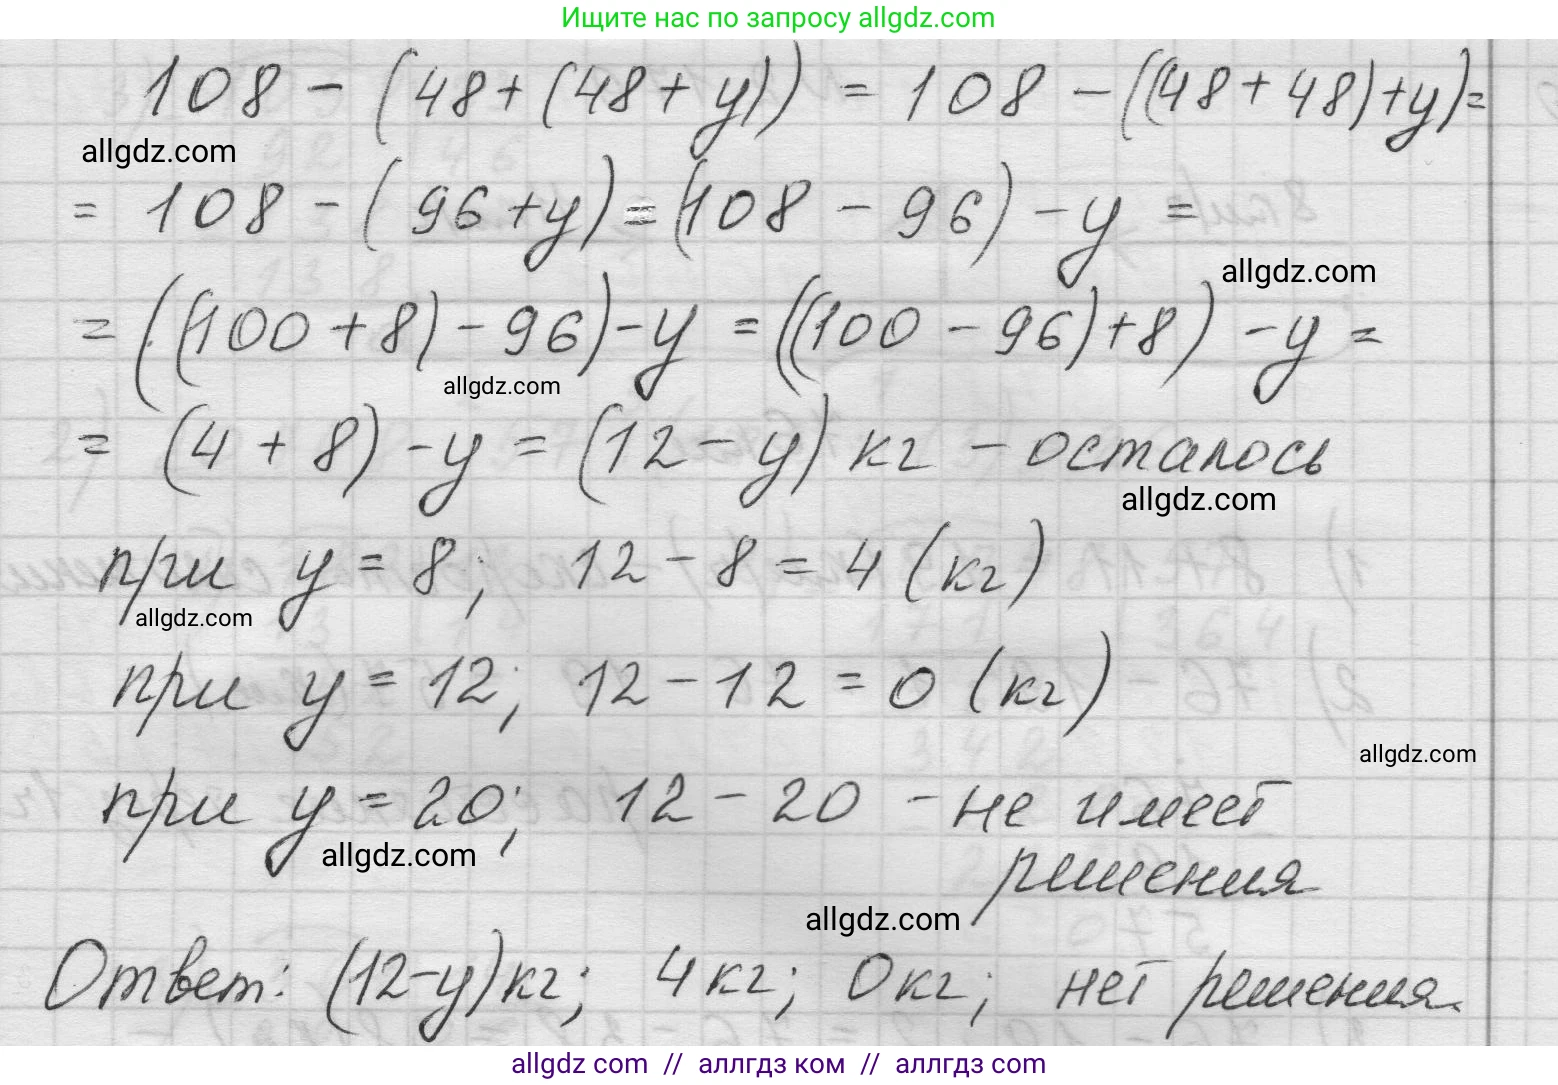 Ищите нас по запросу allgdz.com
108 - (48 + (48 + y)) = 108 - ((48 + 48) + y) =
allgdz.com
= 108 - (96 + y) = (108 - 96) - y =
allgdz.com
= ((100 + 8) - 96) - y = ((100 - 96) + 8) - y =
allgdz.com
= (4 + 8) - y = (12 - y) кг - осталось
allgdz.com
при y = 8; 12 - 8 = 4 (кг)
allgdz.com
при y = 12; 12 - 12 = 0 (кг)
allgdz.com
при y = 20; 12 - 20 - не имеет
allgdz.com
решения
allgdz.com
Ответ: (12-y) кг; 4 кг; 0 кг; нет решения.
allgdz.com // аллгдз ком // аллгдз.com